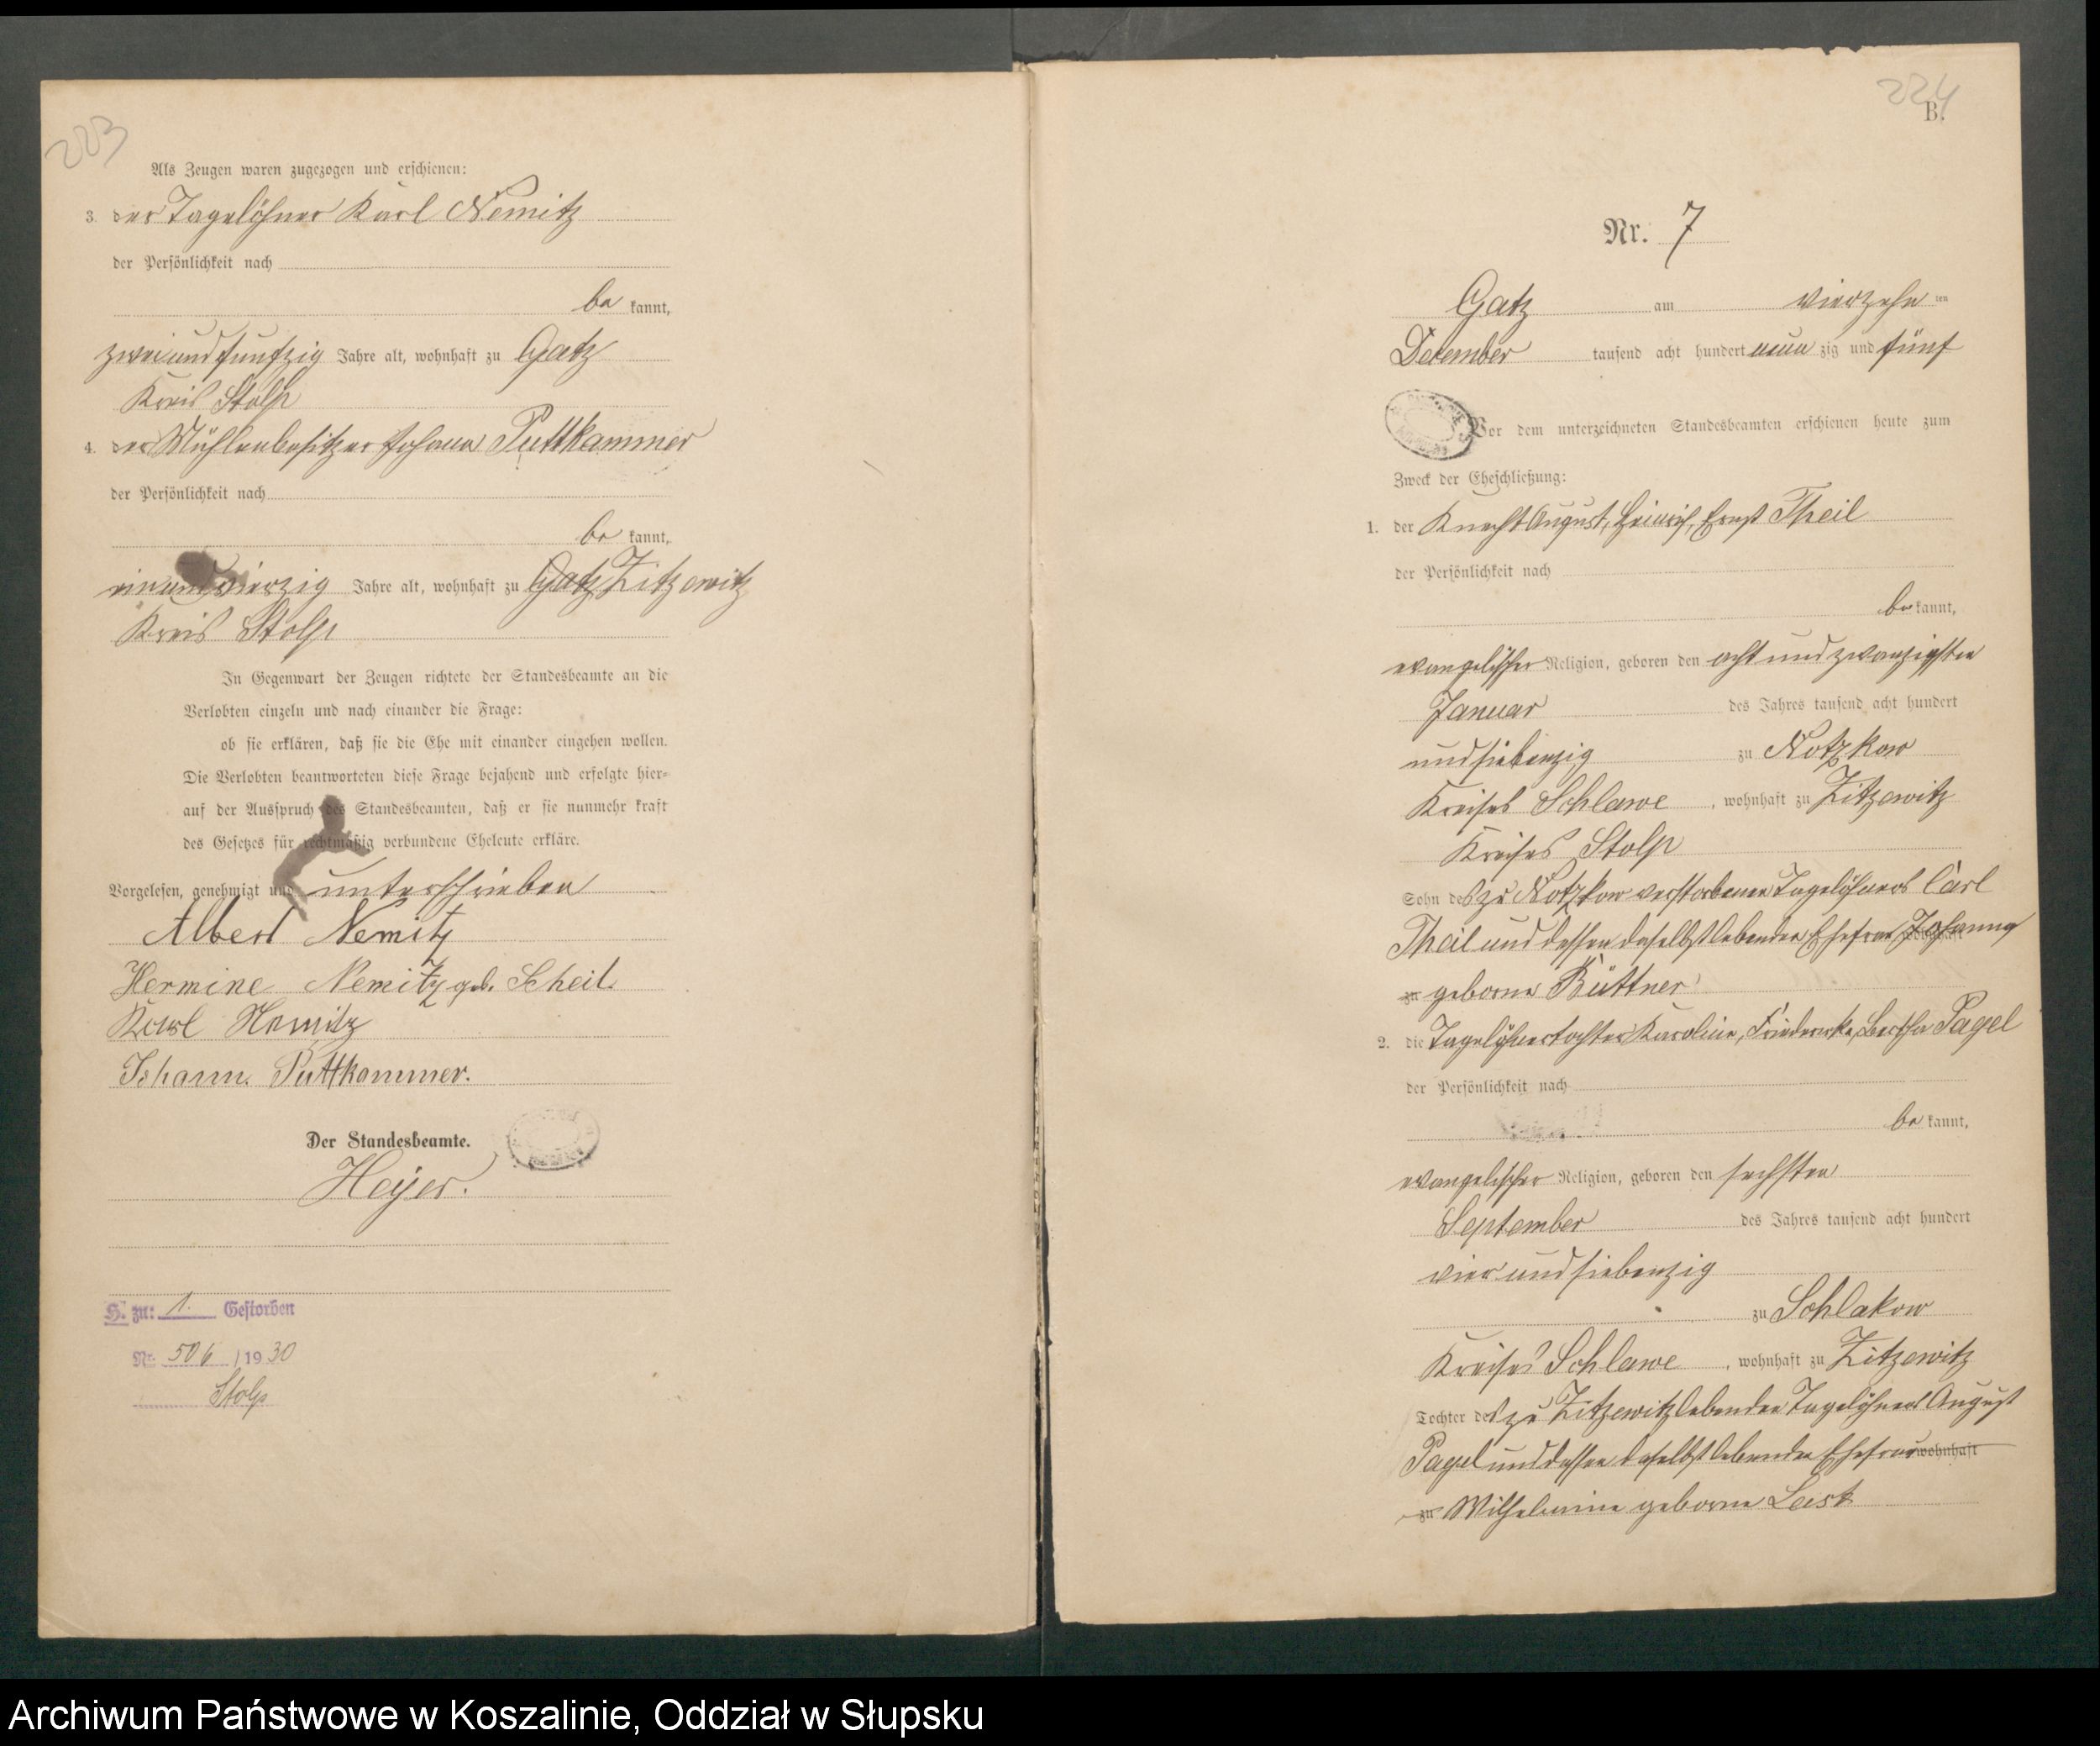 223
Als Zeugen waren zugezogen und erschienen:
3. der Tagelöhner Karl Nemitz
der Persönlichkeit nach
be kannt,
zweiundfunfzig Jahre alt, wohnhaft zu Gatz
Kreis Stolp
4. der Mühlenbesitzer Johann Puttkammer
der Persönlichkeit nach
be kannt,
einundvierzig Jahre alt, wohnhaft zu Gatz Zitzewitz
Kreis Stolp
In Gegenwart der Zeugen richtete der Standesbeamte an die
Verlobten einzeln und nach einander die Frage:
ob sie erklären, daß sie die Ehe mit einander eingehen wollen.
Die Verlobten beantworteten diese Frage bejahend und erfolgte hier-
auf der Ausspruch des Standesbeamten, daß er sie nunmehr kraft
des Gesetzes für rechtmäßig verbundene Eheleute erkläre.
Vorgelesen, genehmigt und unterschrieben
Albert Nemitz
Hermine Nemitz geb. Scheil
Karl Nemitz
Johann Puttkammer.
Der Standesbeamte.
Heyer.
H. zu: 1. Gestorben
Nr. 506 /1930
Stolp
224
B.
Nr. 7
Gatz am vierzehn ten
December tausend acht hundert neun zig und fünf
Vor dem unterzeichneten Standesbeamten erschienen heute zum
Zweck der Eheschließung:
1. der Knecht August, Heinrich, Ernst Theil
der Persönlichkeit nach
be kannt,
evangelischer Religion, geboren den acht und zwanzigsten
Januar des Jahres tausend acht hundert
und siebenzig zu Notzkow
Kreises Schlawe, wohnhaft zu Zitzewitz
Kreises Stolp
Sohn des zu Notzkow verstorbenen Tagelöhners Carl
Theil und dessen daselbst lebenden Ehefrau wohnhaft Johanna
zu geborne Büttner
2. die Tagelöhnertochter Karoline, Friederike, Bertha Pagel
der Persönlichkeit nach
be kannt,
evangelischer Religion, geboren den sechsten
September des Jahres tausend acht hundert
vier und siebenzig
zu Schlakow
Kreises Schlawe, wohnhaft zu Zitzewitz
Tochter des zu Zitzewitz lebenden Tagelöhners August
Pagel und dessen daselbst lebenden Ehefrau wohnhaft
zu Wilhelmine geborne Last
Archiwum Państwowe w Koszalinie, Oddział w Słupsku